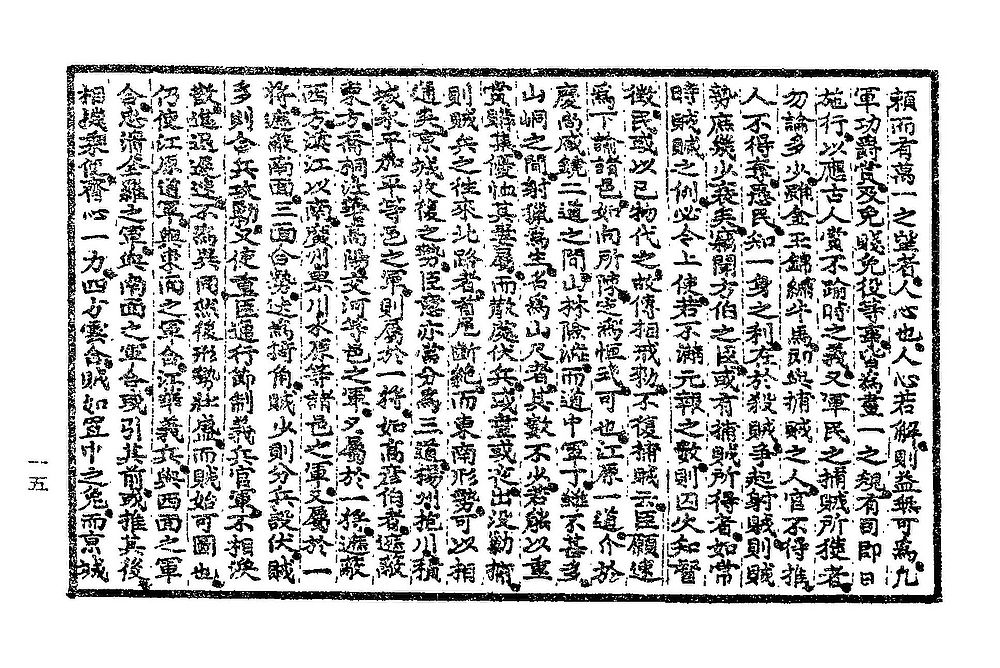 頼而有萬一之望者人心也人心若解則益無可爲凡
軍功爵賞及免賤免役等事皆爲畫一之規有司即日
施行以應古人賞不踰時之義又軍民之捕賊所獲者
勿論多少雖金玉錦繡牛馬即與捕賊之人官不得推
人不得奪愚民知一身之利在於殺賊爭起射賊則賊
勢庶幾少衰矣竊聞方伯之臣或有捕賊所得者如常
時賊贓之例必令上使若不滿元報之數則囚次知督
徴民或以已物代之故傳相戒勑不復捕賊云臣願速
爲下諭諸邑如向所陳定爲恒式可也江原一道介於
慶尚咸鏡二道之間山林險阻而道中軍丁雖不甚多
山峒之間射獵爲生名爲山尺者其數不少若能以重
賞購募優恤其妻屬而散處伏兵或晝或夜出沒勦捕
則賊兵之往來北路者首尾斷絶而東南形勢可以相
通矣京城收復之勢臣意亦當分爲三道楊州抱川積
城永平加平等邑之軍則屬於一將如高彦伯者遮敵
東方喬桐江華高陽交河等邑之軍又屬於一將遮敵
西方漢江以南廣州果川水原等諸邑之軍又屬於一
將遮敵南面三面合勢迭爲掎角賊少則分兵設伏賊
多則合兵攻勦又使重臣通行節制義兵官軍不相渙
散進退遲速不爲異同然後形勢壯盛而賊始可圖也
仍使江原道軍與東面之軍合江華義兵與西面之軍
合忠清全羅之軍與南面之軍合或引其前或推其後
相機乘便齊心一力四方雲合賊如罝中之兎而京城
一五